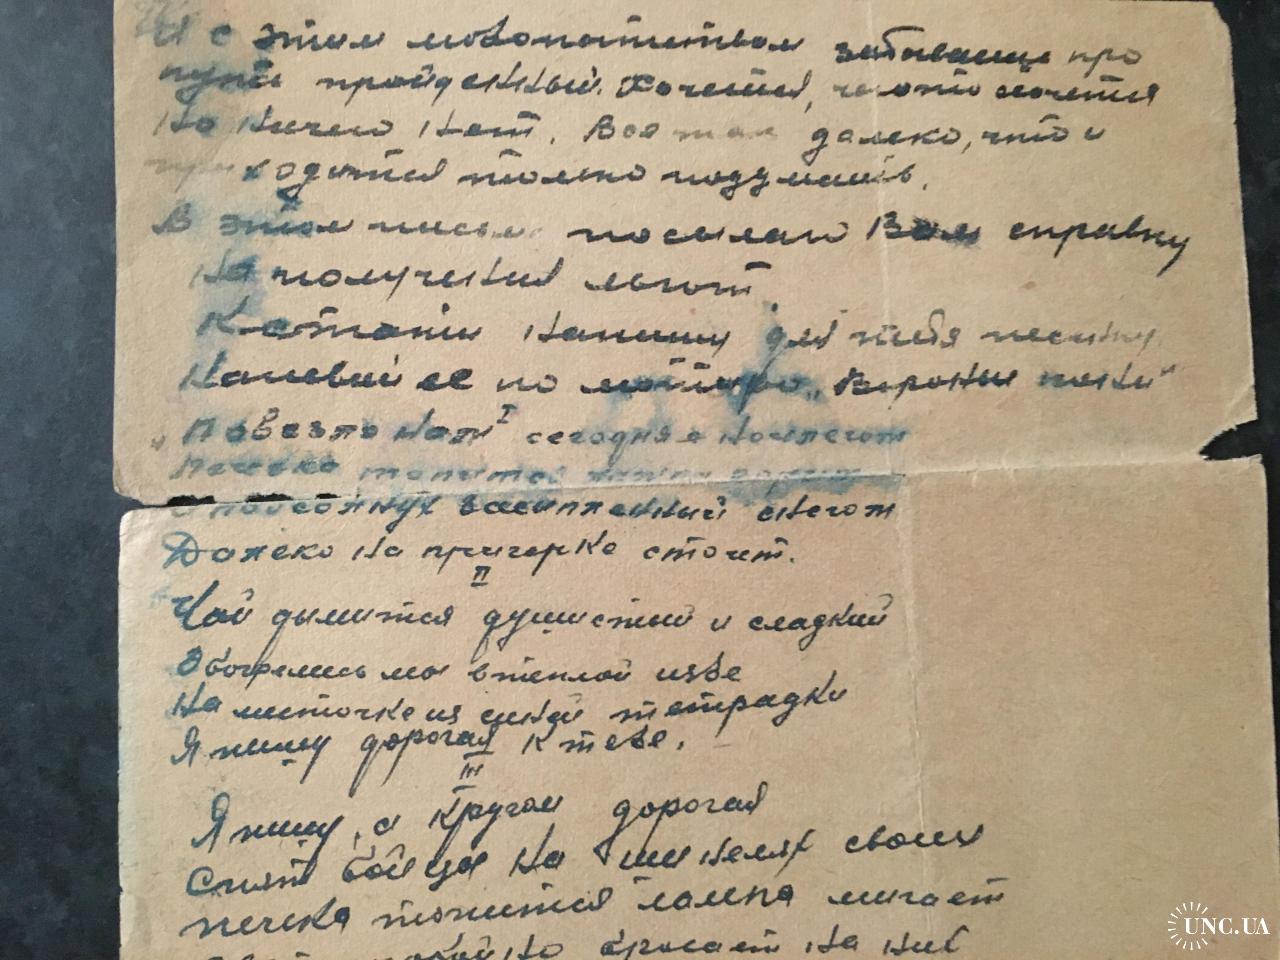 И с этим
забываеш про
путь пройденный. Хочется, чегото хочется
Но ничего нет. Всё так далеко, что и
приходится только подумать.
В этом письме посылаю Вам справку
На получения льгот.
Кстати напишу для тебя песенку
Напевай её по мотиву „Вороные кони"
I
„Повезло нам сегодня с ночлегом
Печека топится
засипленный снегом
Далеко на пригорке стоит.
II
Чай дымится душистый и сладкий
Обогрелись мы в теплой избе
На листочке из синей тетрадки
Я пишу дорогая к тебе.
III
Я пишу, а кругом дорогая
Спят бойцы на шинелях своих
печка топится лампа мигает
бросает на них
UNC.UA